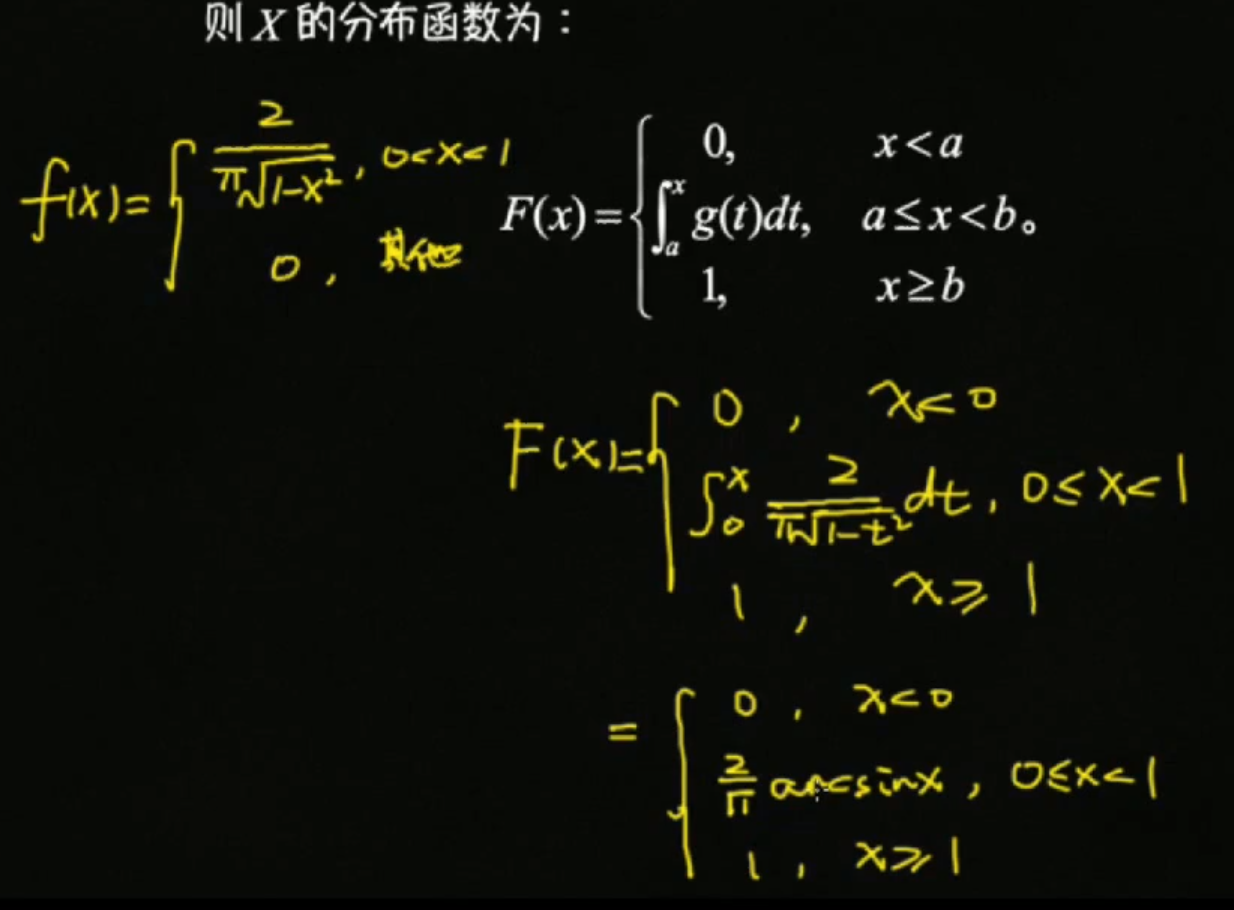 则 X 的分布函数为：
f(x) = { 2/(π√(1-x²)), 0<x<1
0, 其他
F(x) = { 0, x < a
∫ₐˣ g(t)dt, a ≤ x < b。
1, x ≥ b
F(x) = { 0, x<0
∫₀ˣ 2/(π√(1-t²)) dt, 0≤x<1
1, x≥1
= { 0, x<0
2/π arcsinx, 0≤x<1
1, x≥1